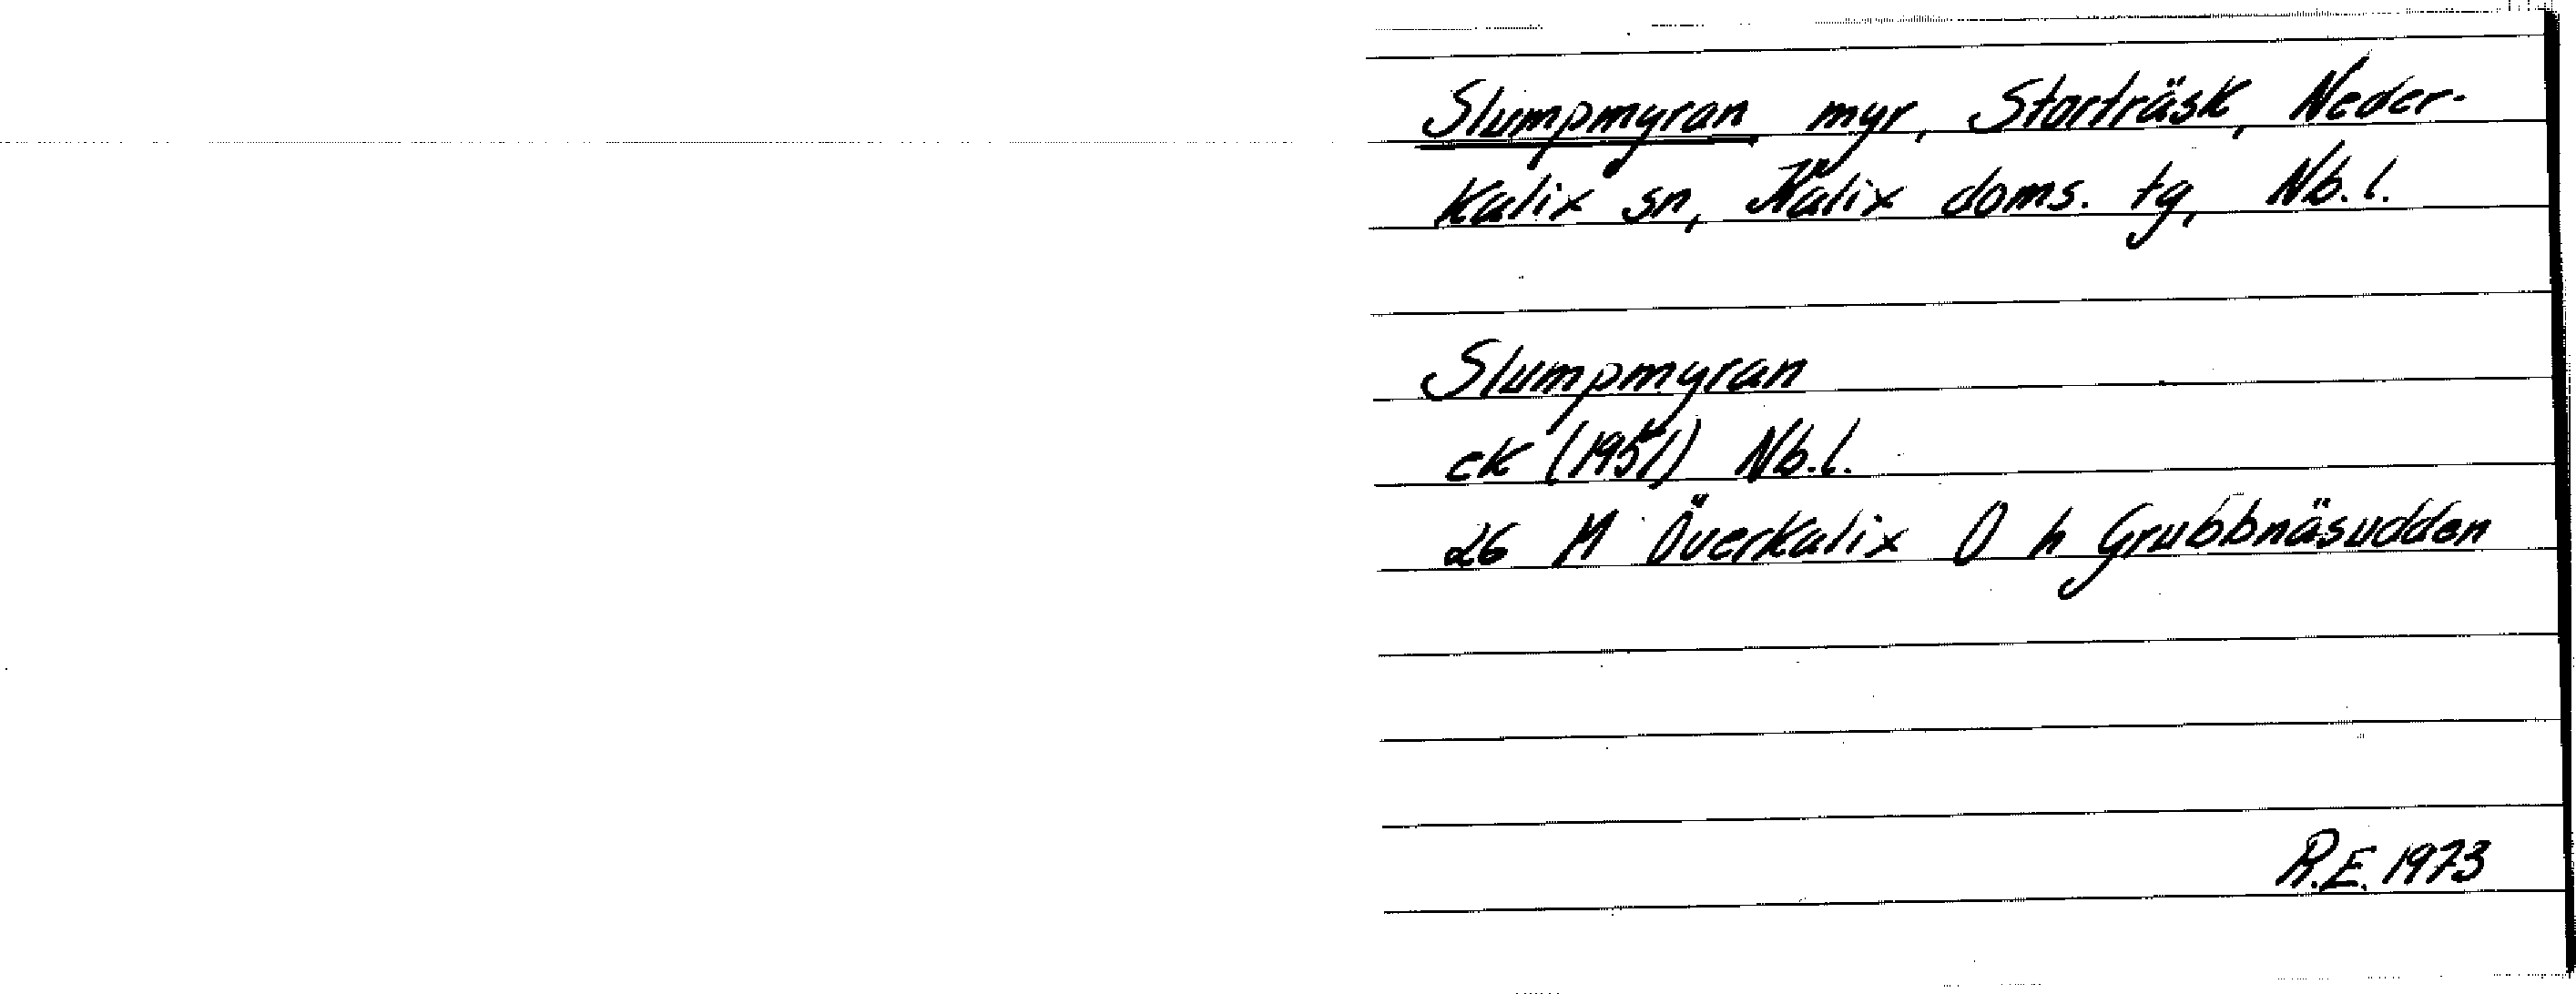 Slumpmyran myr, Storträsk, Neder-
kalix sn, Kalix doms. tg, Nb.l.
Slumpmyran
ek (1951) Nb.l.
26 M Överkalix O h Grubbnäsudden
R.E. 1973